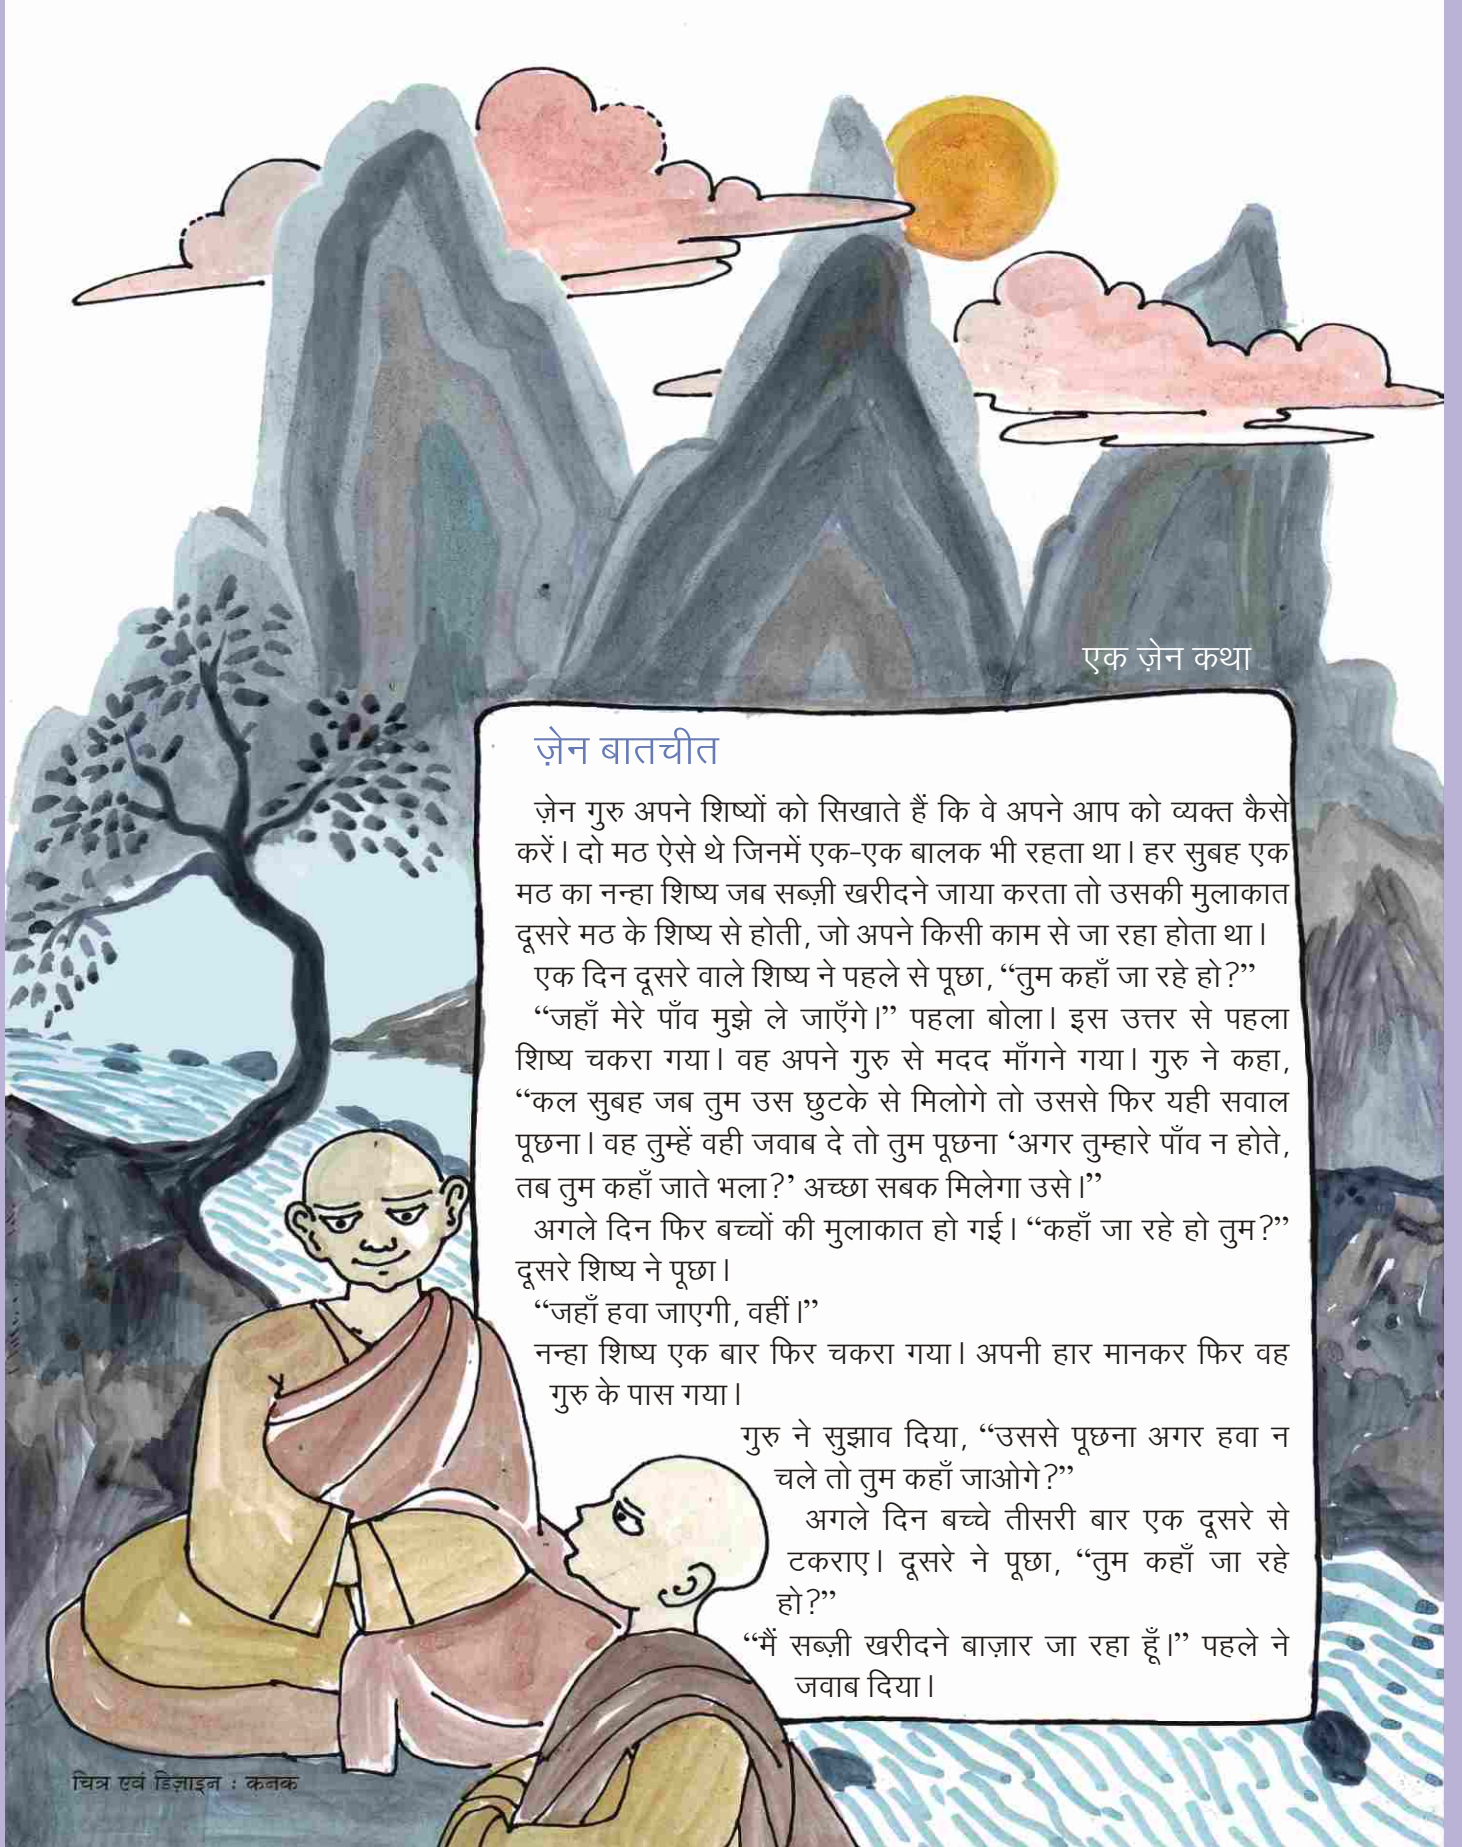 एक ज़ेन कथा
ज़ेन बातचीत
ज़ेन गुरु अपने शिष्यों को सिखाते हैं कि वे अपने आप को व्यक्त कैसे
करें। दो मठ ऐसे थे जिनमें एक-एक बालक भी रहता था। हर सुबह एक
मठ का नन्हा शिष्य जब सब्ज़ी खरीदने जाया करता तो उसकी मुलाकात
दूसरे मठ के शिष्य से होती, जो अपने किसी काम से जा रहा होता था।
एक दिन दूसरे वाले शिष्य ने पहले से पूछा, “तुम कहाँ जा रहे हो?”
“जहाँ मेरे पाँव मुझे ले जाएँगे।” पहला बोला। इस उत्तर से पहला
शिष्य चकरा गया। वह अपने गुरु से मदद माँगने गया। गुरु ने कहा,
“कल सुबह जब तुम उस छुटके से मिलोगे तो उससे फिर यही सवाल
पूछना। वह तुम्हें वही जवाब दे तो तुम पूछना ‘अगर तुम्हारे पाँव न होते,
तब तुम कहाँ जाते भला?’ अच्छा सबक मिलेगा उसे।”
अगले दिन फिर बच्चों की मुलाकात हो गई। “कहाँ जा रहे हो तुम?”
दूसरे शिष्य ने पूछा।
“जहाँ हवा जाएगी, वहीं।”
नन्हा शिष्य एक बार फिर चकरा गया। अपनी हार मानकर फिर वह
गुरु के पास गया।
गुरु ने सुझाव दिया, “उससे पूछना अगर हवा न
चले तो तुम कहाँ जाओगे?”
अगले दिन बच्चे तीसरी बार एक दूसरे से
टकराए। दूसरे ने पूछा, “तुम कहाँ जा रहे
हो?”
“मैं सब्ज़ी खरीदने बाज़ार जा रहा हूँ।” पहले ने
जवाब दिया।
चित्र एवं डिज़ाइन : कनक